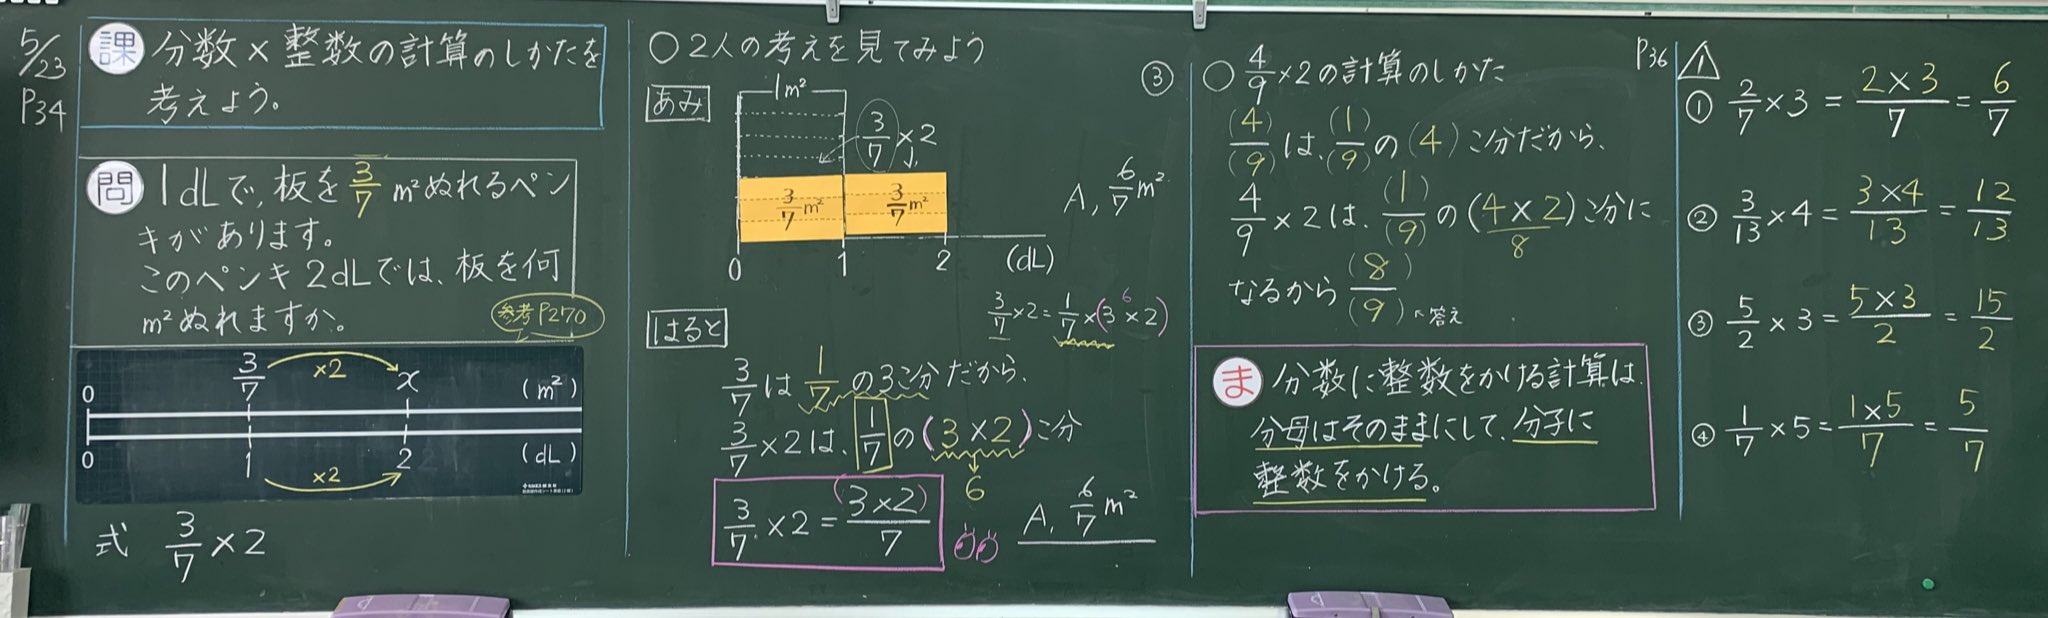 5/23
P34
課 分数×整数の計算のしかたを
考えよう。
問 1dLで、板を3/7m²ぬれるペン
キがあります。
このペンキ2dLでは、板を何
m²ぬれますか。
参考P270
3/7 ×2 x
0 (m²)
0 1 2 (dL)
×2
式 3/7×2
○2人の考えを見てみよう
あみ
1m²
3/7×2
3/7m² 3/7m²
0 1 2 (dL)
A, 6/7m²
はると
3/7×2=1/7×(3×2)
6
3/7は1/7の3こ分だから、
3/7×2は、1/7の(3×2)こ分
6
3/7×2=(3×2)/7
A, 6/7m²
③
○4/9×2の計算のしかた
(4)/(9)は、(1)/(9)の(4)こ分だから、
4/9×2は、(1)/(9)の(4×2)こ分に
8
なるから(8)/(9)
答え
ま 分数に整数をかける計算は、
分母はそのままにして、分子に
整数をかける。
P36
1
① 2/7×3=2×3/7=6/7
② 3/13×4=3×4/13=12/13
③ 5/2×3=5×3/2=15/2
④ 1/7×5=1×5/7=5/7